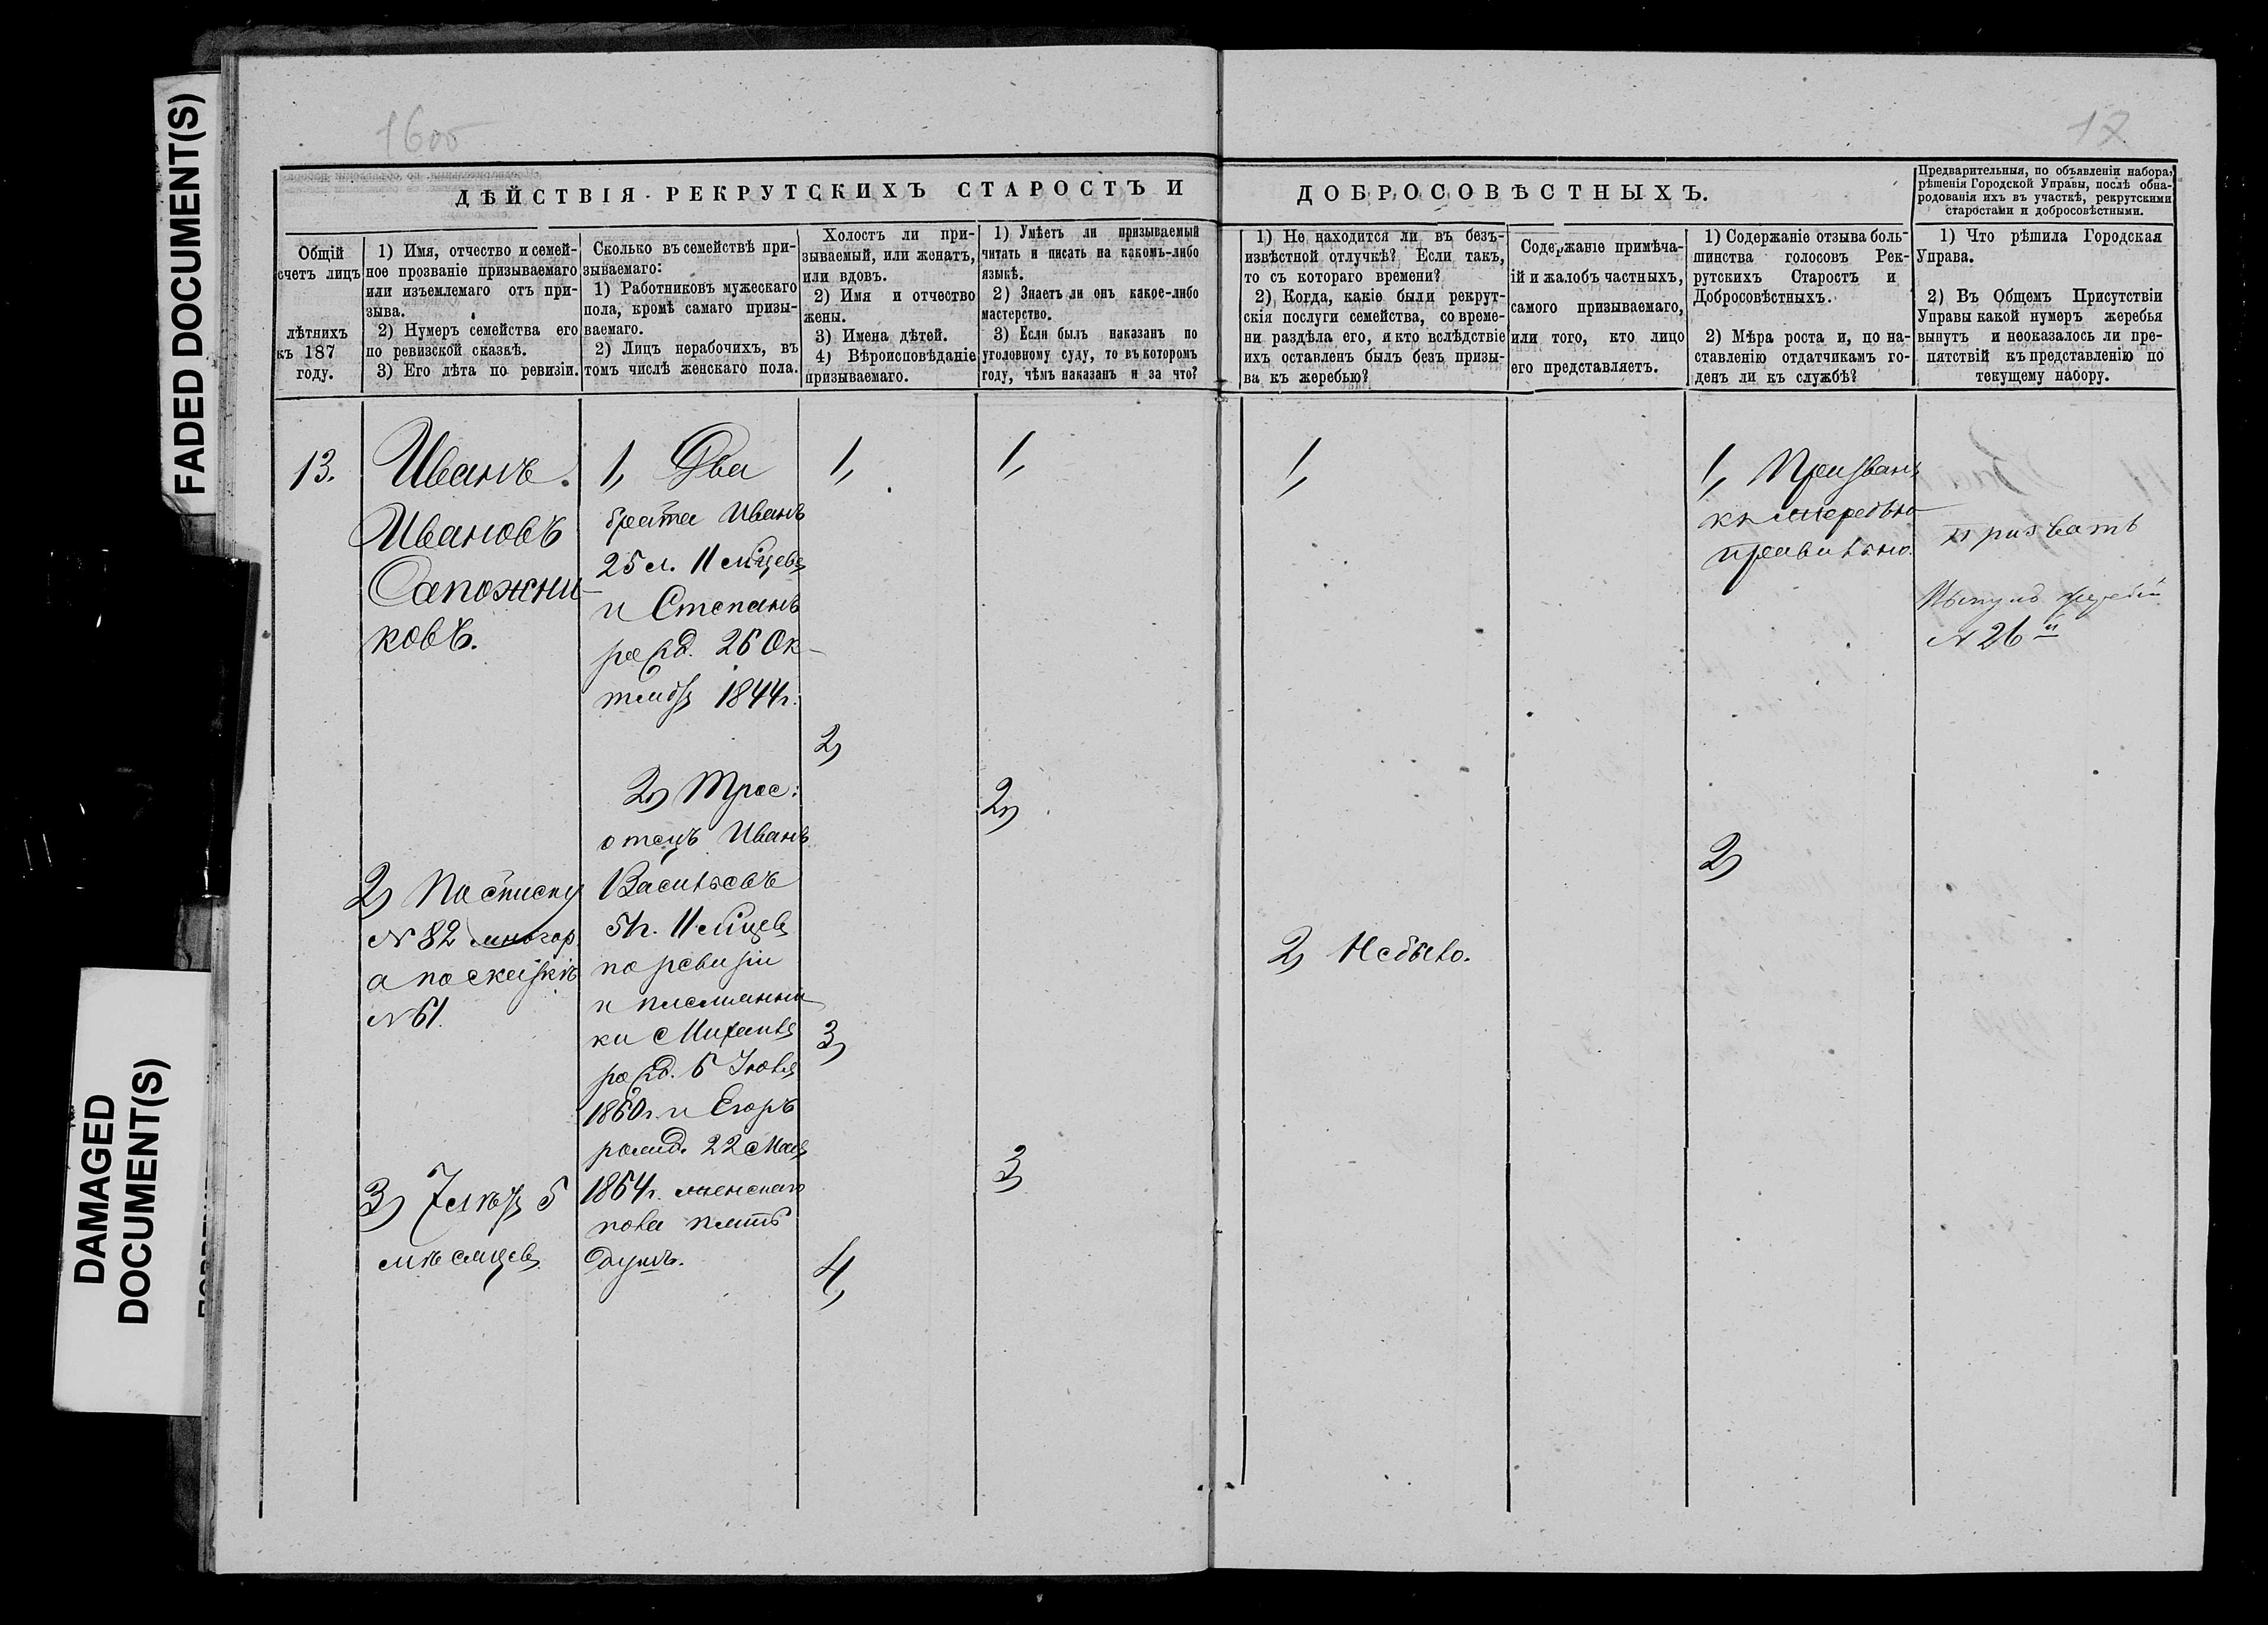 FADED DOCUMENT(S)
DAMAGED
DOCUMENT(S)
1600
17
ДѢЙСТВІЯ РЕКРУТСКИХЪ СТАРОСТЪ И
ДОБРОСОВѢСТНЫХЪ.
Предварительныя, по объявленіи набора,
рѣшенія Городской Управы, послѣ обна-
родованія ихъ въ участкѣ, рекрутскими
старостами и добросовѣстными.
Общій
счетъ лицъ
лѣтнихъ
къ 187
году.
1) Имя, отчество и семей-
ное прозваніе призываемаго
или изъемлемаго отъ при-
зыва.
2) Нумеръ семейства его
по ревизской сказкѣ.
3) Его лѣта по ревизіи.
Сколько въ семействѣ при-
зываемаго:
1) Работниковъ мужескаго
пола, кромѣ самаго призы-
ваемаго.
2) Лицъ нерабочихъ, въ
томъ числѣ женскаго пола.
Холостъ ли при-
зываемый, или женатъ,
или вдовъ.
2) Имя и отчество
жены.
3) Имена дѣтей.
4) Вѣроисповѣданіе
призываемаго.
1) Умѣетъ ли призываемый
читать и писать на какомъ-либо
языкѣ.
2) Знаетъ ли онъ какое-либо
мастерство.
3) Если былъ наказанъ по
уголовному суду, то въ которомъ
году, чѣмъ наказанъ и за что?
1) Не находится ли въ безъ-
извѣстной отлучкѣ? Если такъ,
то съ котораго времени?
2) Когда, какіе были рекрут-
скія послуги семейства, со време-
ни раздѣла его, и кто вслѣдствіе
ихъ оставленъ былъ безъ призы-
ва къ жеребью?
Содержаніе примѣча-
ій и жалобъ частныхъ,
самого призываемаго,
или того, кто лицо
его представляетъ.
1) Содержаніе отзыва боль-
шинства голосовъ Рек-
рутскихъ Старостъ и
Добросовѣстныхъ.
2) Мѣра роста и, по на-
ставленію отдатчикамъ го-
денъ ли къ службѣ?
1) Что рѣшила Городская
Управа.
2) Въ Общемъ Присутствіи
Управы какой нумеръ жеребья
вынутъ и неоказалось ли пре-
пятствій къ представленію по
текущему набору.
13.
Иванъ
Ивановъ
Сапожни-
ковъ.
2) По списку
№ 82
а по сказкѣ
№ 61.
3) 7 лѣтъ 5
мѣсяцевъ
1, Два
брата Иванъ
25 л. 11 мѣсяцевъ
и Степанъ
рожд. 26 Ок-
тября 1844 г.
2) Трое:
отецъ Иванъ
Васильевъ
51 г. 11 мѣсяцевъ
по ревизіи
и племянни-
ки Михаилъ
рожд. 6 Іюля
1860 г. и Егоръ
рожд. 22 Мая
1864 г. женскаго
пола пять
душъ.
1,
2)
3)
4,
1,
2)
3)
1,
2) Небыло.
1, Призванъ
къ жеребью
правильно.
2)
призвать
Вынулъ жребій
№ 26й